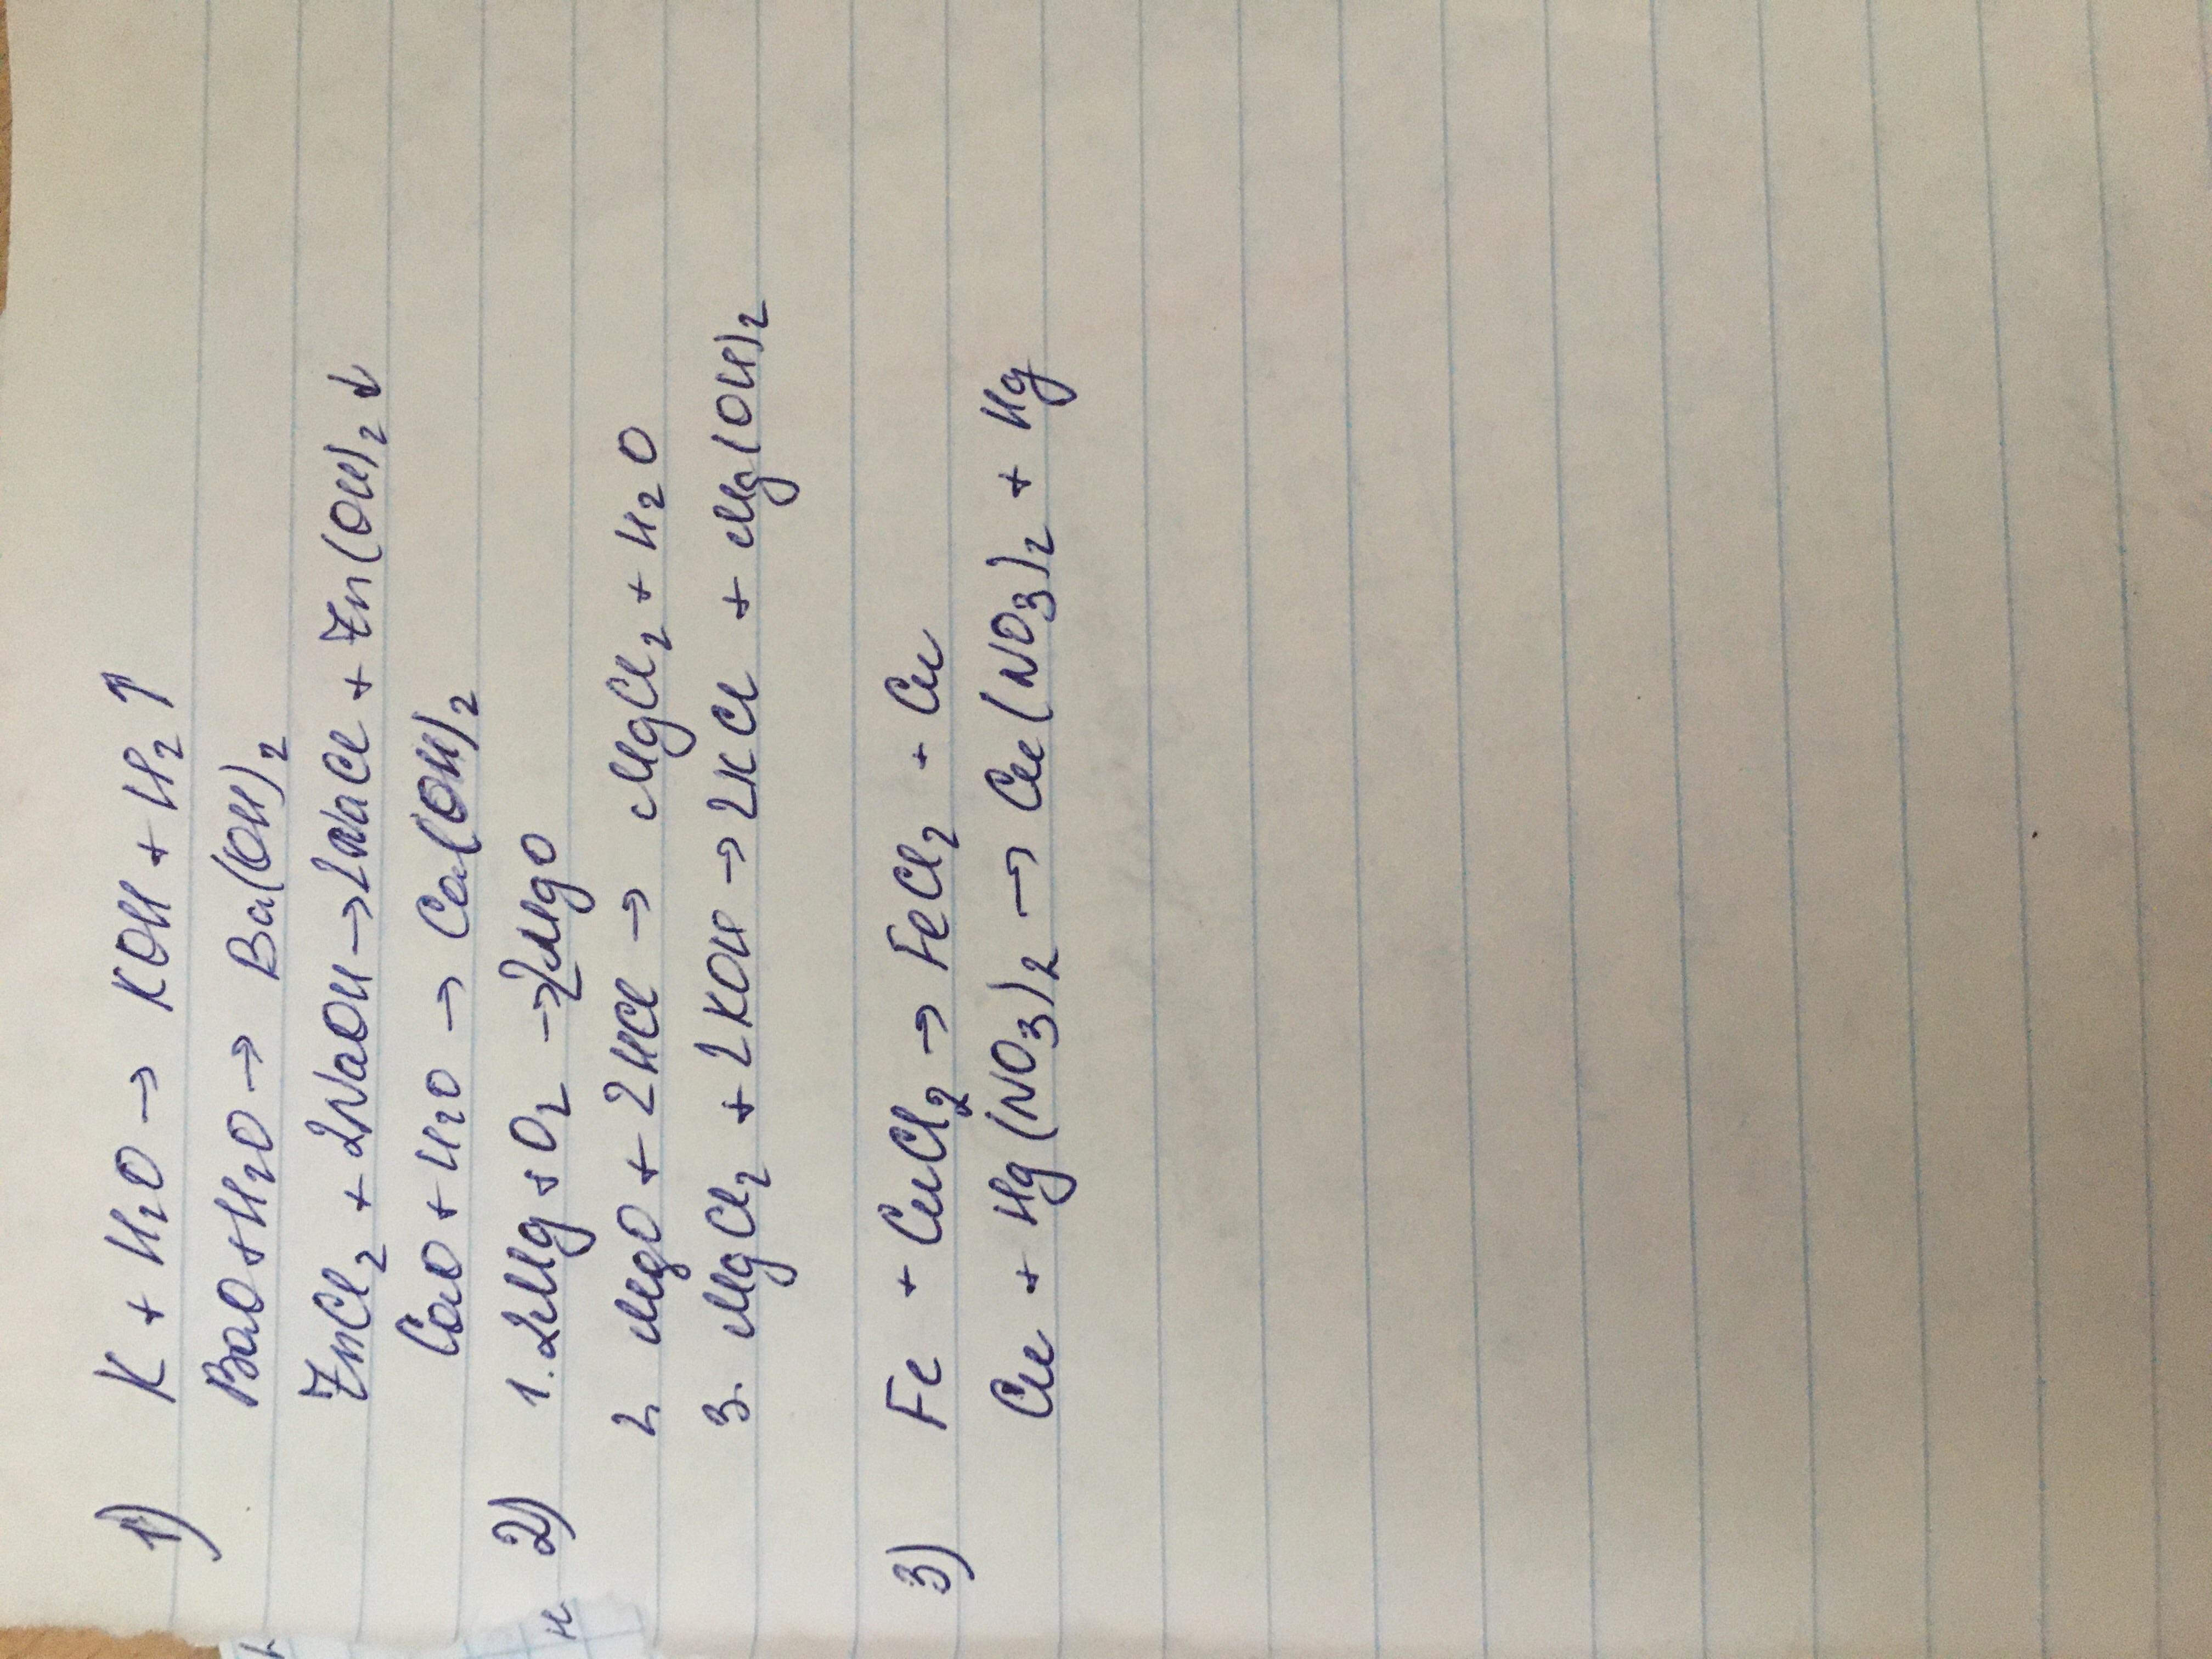 1) K + H₂O → KOH + H₂ ↑
BaO + H₂O → Ba(OH)₂
ZnCl₂ + 2NaOH → 2NaCl + Zn(OH)₂ ↓
CaO + H₂O → Ca(OH)₂
2) 1. 2Mg + O₂ → 2MgO
2. MgO + 2HCl → MgCl₂ + H₂O
3. MgCl₂ + 2KOH → 2KCl + Mg(OH)₂
3) Fe + CuCl₂ → FeCl₂ + Cu
Cu + Hg(NO₃)₂ → Cu(NO₃)₂ + Hg